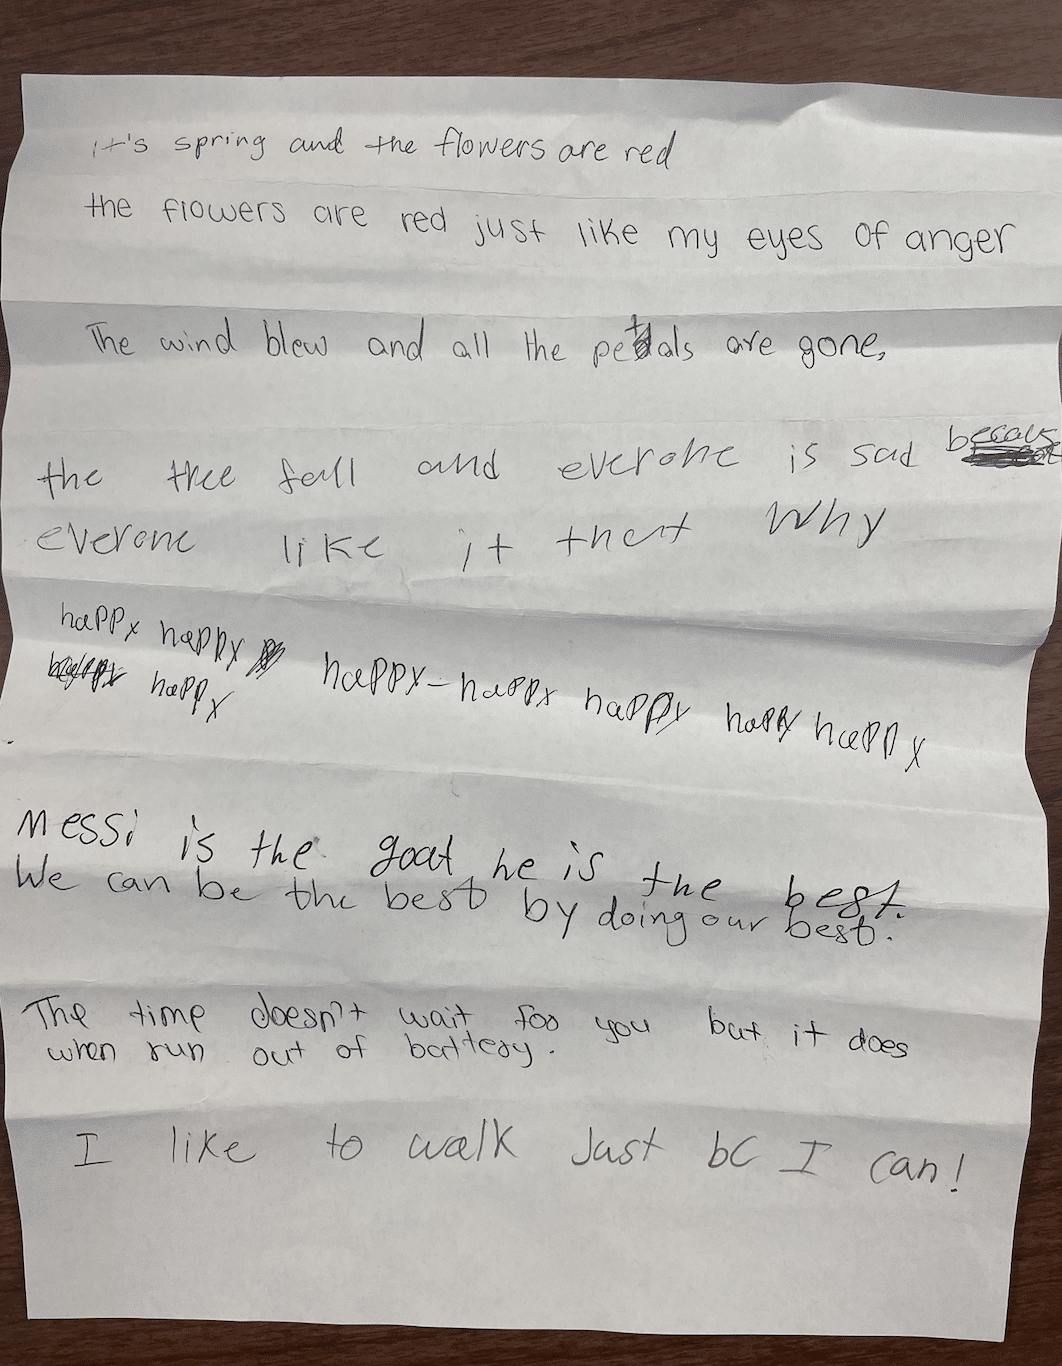 it's spring and the flowers are red
the flowers are red just like my eyes of anger
The wind blew and all the petals are gone,
the tree fall and everone is sad becaus
everone like it thent Why
happy happy happy-happy happy happy happy
happy
Messi is the goat, he is the best.
We can be the best by doing our best.
The time doesn't wait foo you but it does
when run out of battery.
I like to walk Just bc I can!